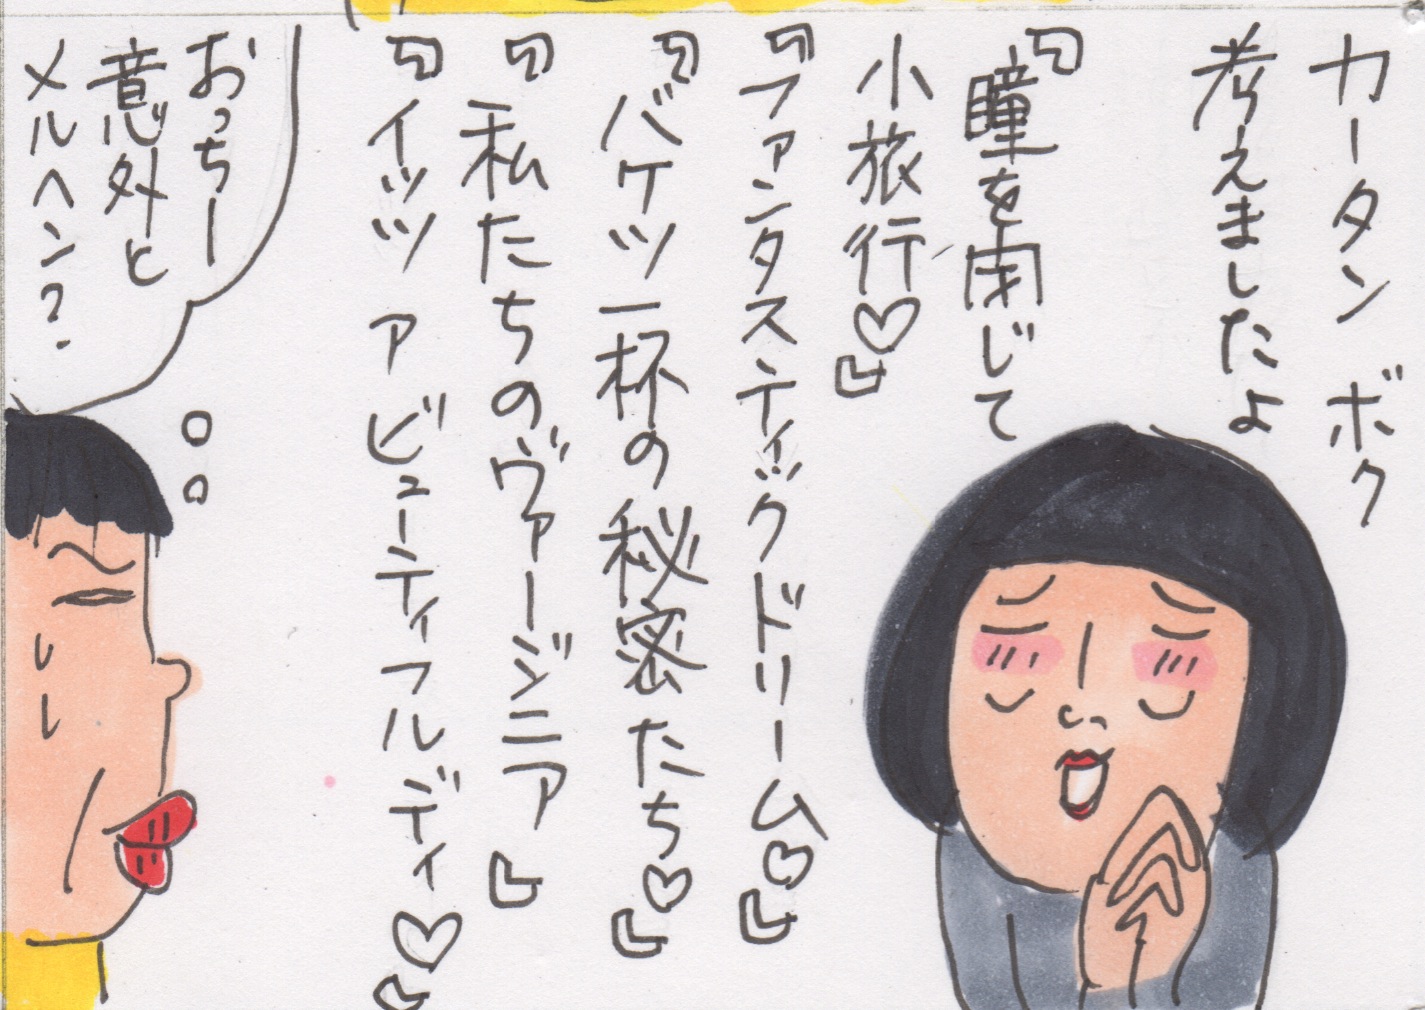 カータン ボク
考えましたよ
『瞳を閉じて
小旅行♡』
『ファンタスティックドリーム♡』
『バケツ一杯の秘密たち♡』
『私たちのヴァージニア』
『イッツ ア ビューティフルディ♡』
おっちー
意外と
メルヘン?